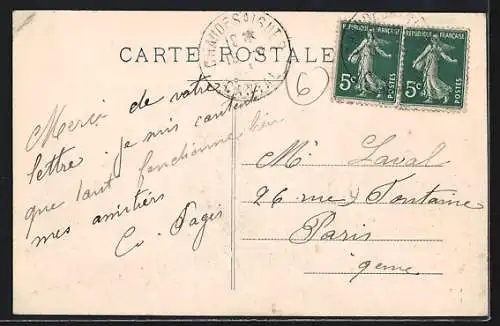 CARTE POSTALE
CHAUDESAIGUES
CANTAL
REPUBLIQUE FRANÇAISE
5c POSTES
REPUBLIQUE FRANÇAISE
5c POSTES
6
Merci de votre
lettre. je suis contente
que tout fonctionne bien
mes amitiés
Pagès
Mr Laval
26 rue Fontaine
Paris
9eme